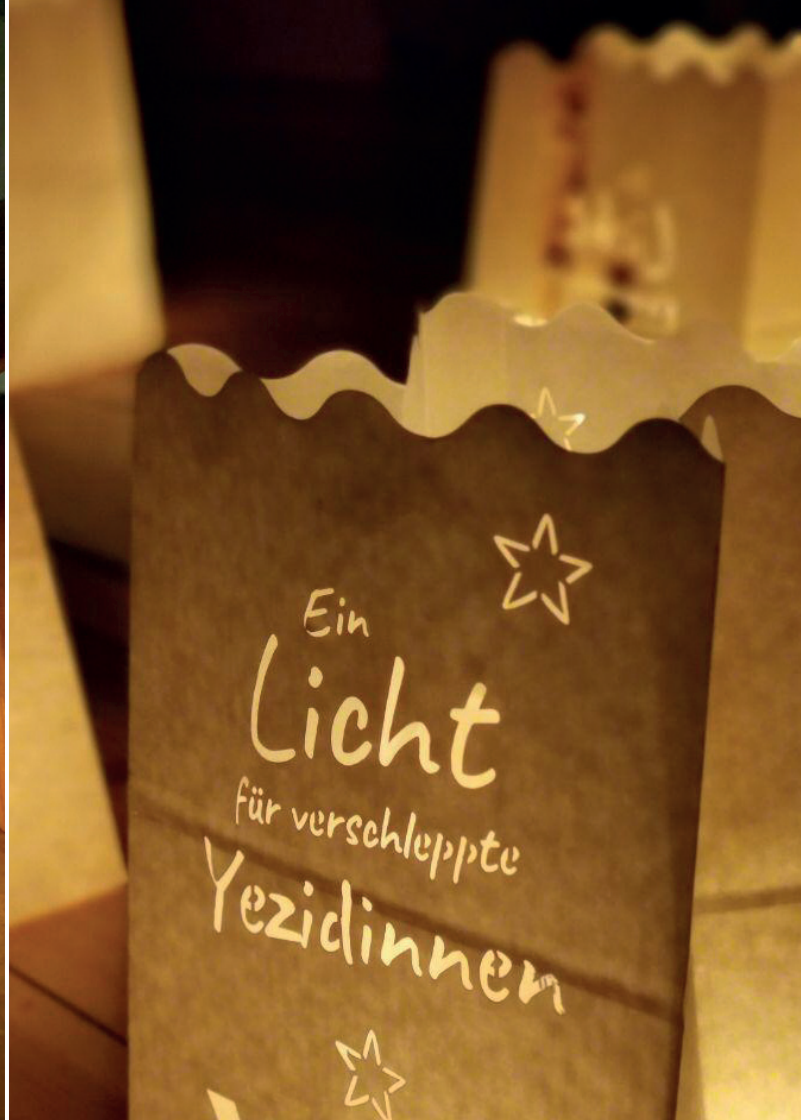 Ein
Licht
für verschleppte
Yezidinnen